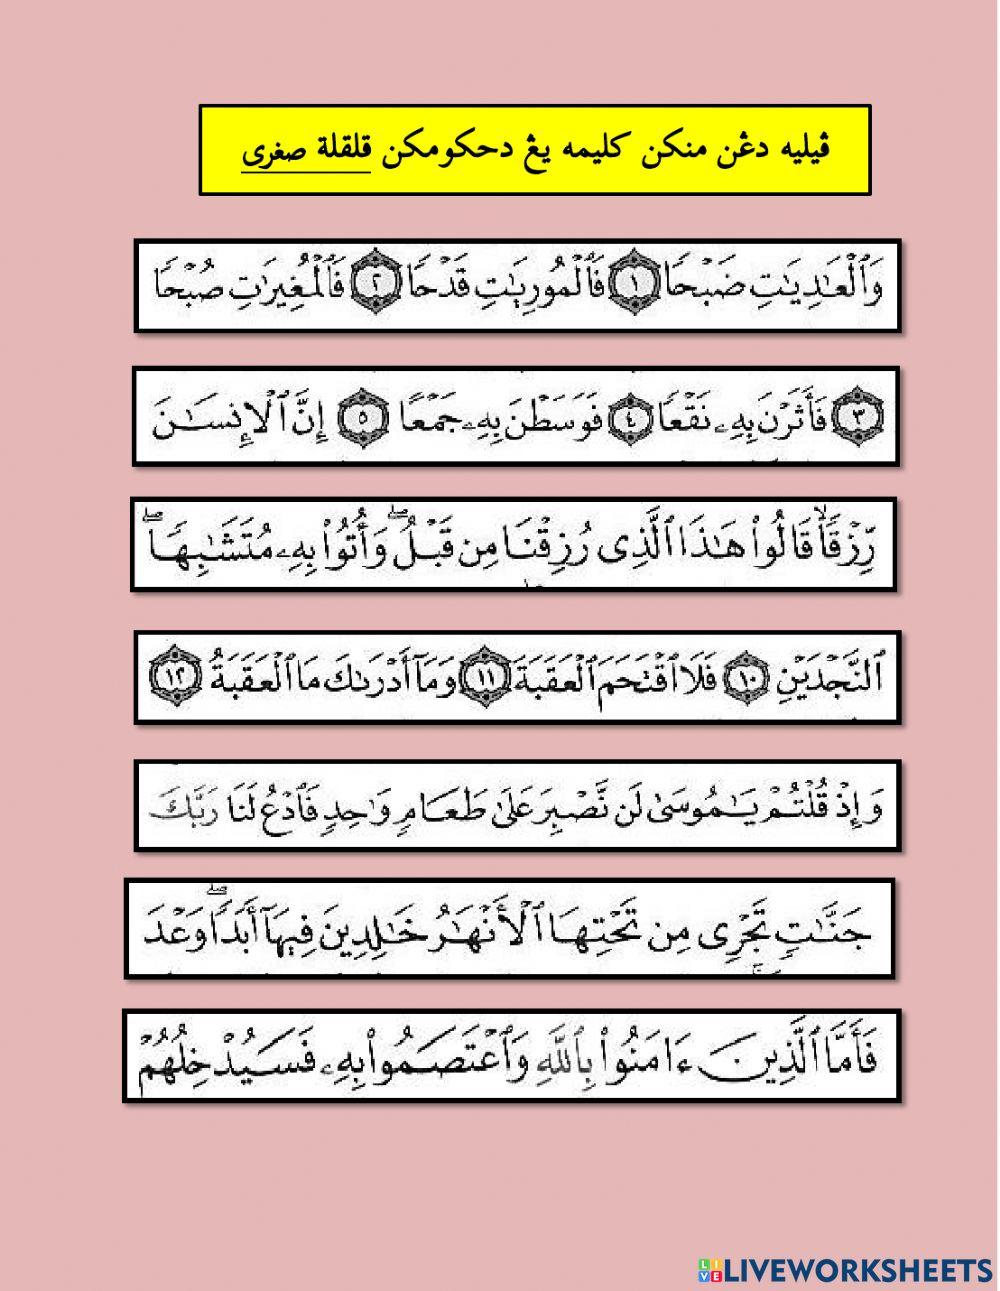 ڤيليه دڠن منكن كليمه يڠ دحكومكن قلقلة صغرى
وَٱلْعَٰدِيَٰتِ ضَبْحًا ١ فَٱلْمُورِيَٰتِ قَدْحًا ٢ فَٱلْمُغِيرَٰتِ صُبْحًا
٣ فَأَثَرْنَ بِهِۦ نَقْعًا ٤ فَوَسَطْنَ بِهِۦ جَمْعًا ٥ إِنَّ ٱلْإِنسَٰنَ
رِّزْقًاۙ قَالُوا۟ هَٰذَا ٱلَّذِى رُزِقْنَا مِن قَبْلُۖ وَأُتُوا۟ بِهِۦ مُتَشَٰبِهًاۖ
ٱلنَّجْدَيْنِ ١٠ فَلَا ٱقْتَحَمَ ٱلْعَقَبَةَ ١١ وَمَآ أَدْرَىٰكَ مَا ٱلْعَقَبَةُ ١٢
وَإِذْ قُلْتُمْ يَٰمُوسَىٰ لَن نَّصْبِرَ عَلَىٰ طَعَامٍ وَٰحِدٍ فَٱدْعُ لَنَا رَبَّكَ
جَنَّٰتٍ تَجْرِى مِن تَحْتِهَا ٱلْأَنْهَٰرُ خَٰلِدِينَ فِيهَآ أَبَدًاۖ وَعْدَ
فَأَمَّا ٱلَّذِينَ ءَامَنُوا۟ بِٱللَّهِ وَٱعْتَصَمُوا۟ بِهِۦ فَسَيُدْخِلُهُمْ
LIVEWORKSHEETS